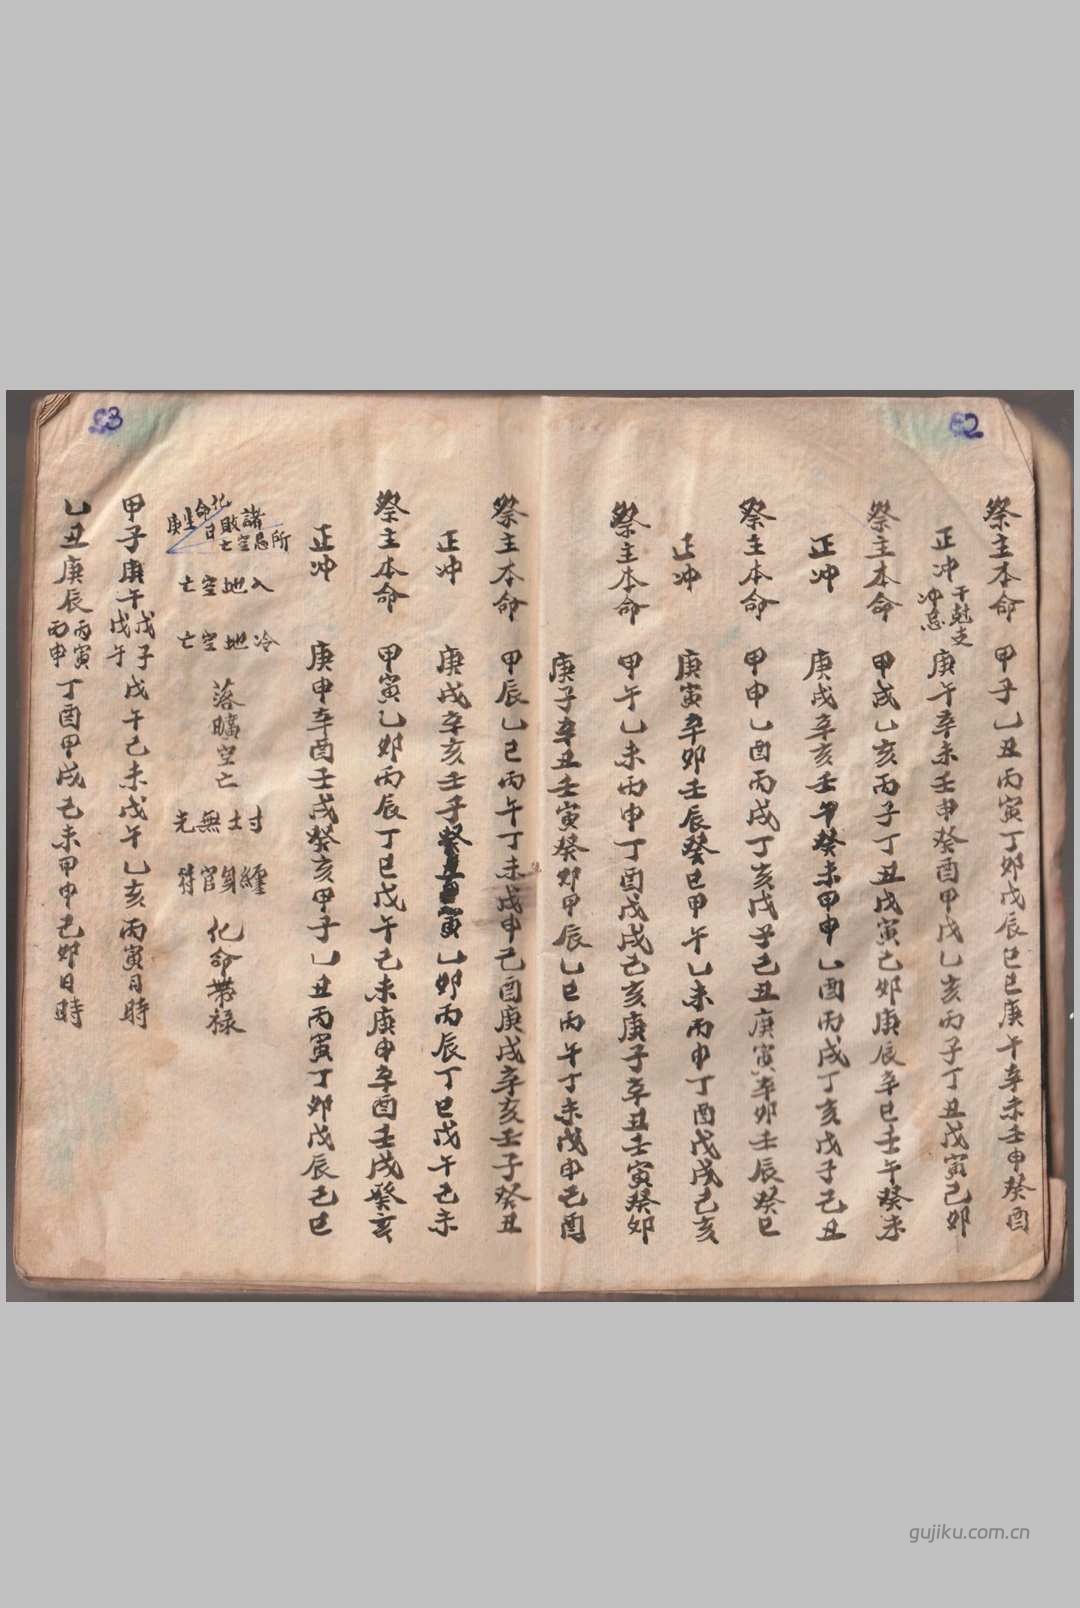 62
祭主本命 甲子乙丑丙寅丁卯戊辰己巳庚午辛未壬申癸酉
正冲 干尅支冲忌 庚午辛未壬申癸酉甲戌乙亥丙子丁丑戊寅己卯
祭主本命 甲戌乙亥丙子丁丑戊寅己卯庚辰辛巳壬午癸未
正冲 庚戌辛亥壬午癸未甲申乙酉丙戌丁亥戊子己丑
祭主本命 甲申乙酉丙戌丁亥戊子己丑庚寅辛卯壬辰癸巳
正冲 庚寅辛卯壬辰癸巳甲午乙未丙申丁酉戊戌己亥
祭主本命 甲午乙未丙申丁酉戊戌己亥庚子辛丑壬寅癸卯
庚子辛丑壬寅癸卯甲辰乙巳丙午丁未戊申己酉
63
祭主本命 甲辰乙巳丙午丁未戊申己酉庚戌辛亥壬子癸丑
正冲 庚戌辛亥壬子癸丑甲寅乙卯丙辰丁巳戊午己未
祭主本命 甲寅乙卯丙辰丁巳戊午己未庚申辛酉壬戌癸亥
正冲 庚申辛酉壬戌癸亥甲子乙丑丙寅丁卯戊辰己巳
諸敗日
所忌空亡
化命生庚
入地空亡
冷地空亡
落曠空亡
封土無光
纏身官符
化命帶祿
甲子庚午戊子戊午戊午己未戊午乙亥丙寅日時
乙丑庚辰丙寅丙申丁酉甲戌己未甲申己卯日時
gujiku.com.cn